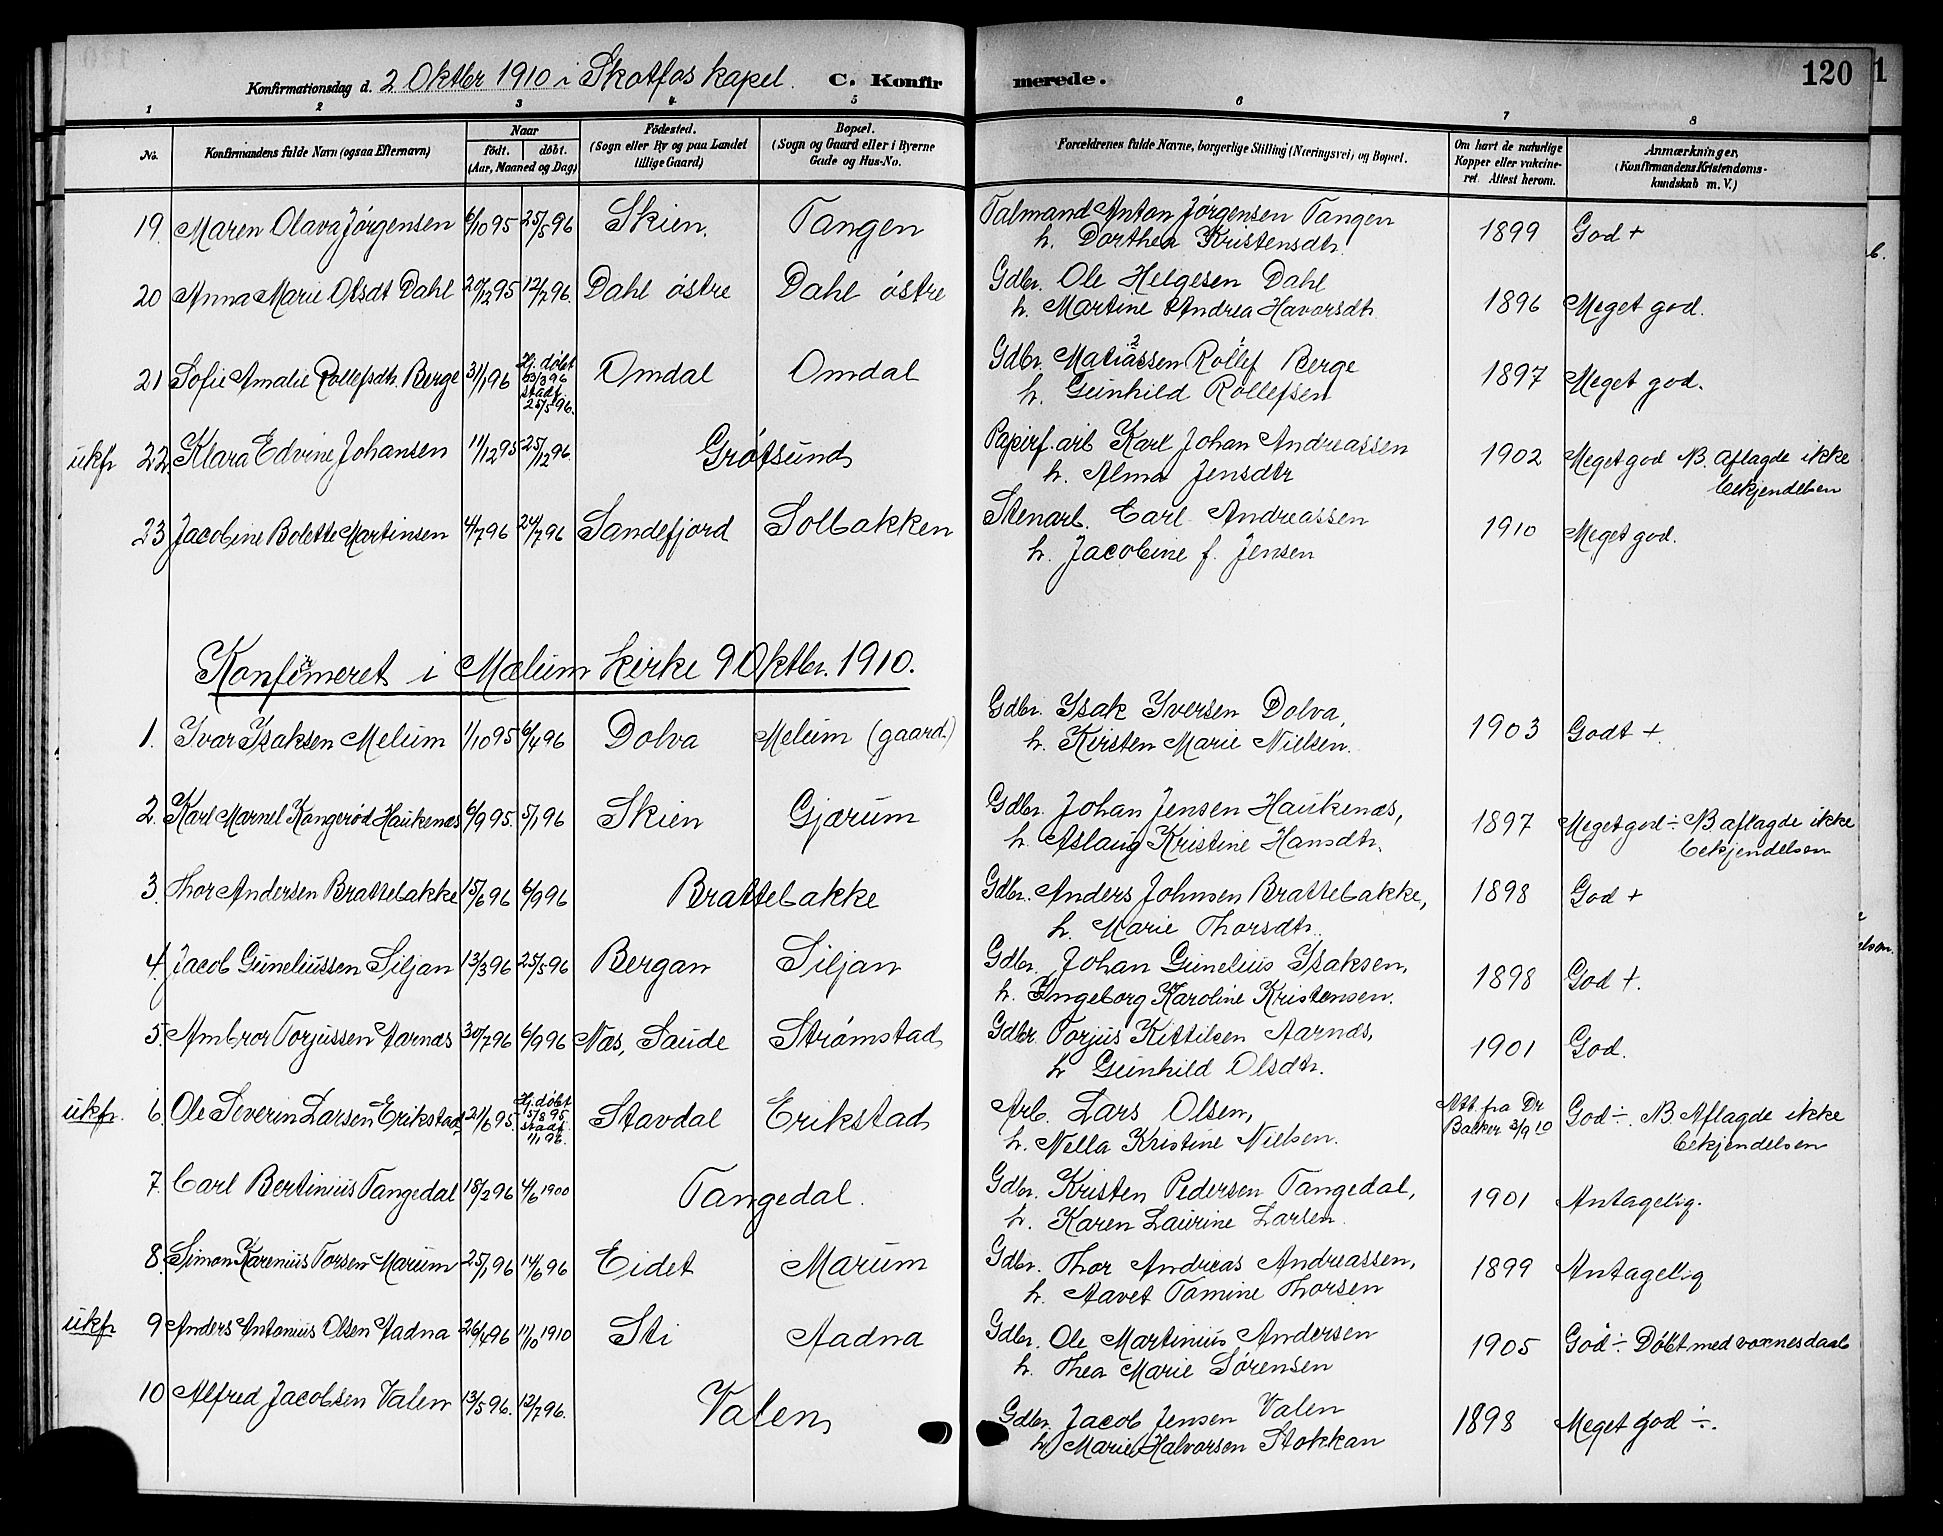 Konfirmationsdag d. 2 Oktbr 1910 i Skotfos kapel. C. Konfirmerede. 120
1 2 3 4 5 6 7 8
No. Konfirmandens fulde Navn (ogsaa Efternavn) Naar født. døbt. (Aar, Maaned og Dag) Fødested. (Sogn eller By og paa Landet tillige Gaard) Bopæl. (Sogn og Gaard eller i Byerne Gade og Hus-No. Forældrenes fulde Navne, borgerlige Stilling (Næringsvei) og Bopæl. Om havt de naturlige Kopper eller vakcineret. Attest herom. Anmærkninger. (Konfirmandens Kristendomskundskab m. V.)
19. Maren Olava Jørgensen 6/10 95 25/5 96 Skien. Tangen Talmand Anton Jørgensen Tangen 1899 God +
h. Dorthea Kristensdtr.
20 Anna Marie Olsdt Dahl 20/12 95 12/7 96. Dahl østre Dahl østre Gdbr. Ole Helgesen Dahl 1896 Meget god.
h. Martine Andrea Havorsdtr
21 Sofie Amalie Rollefsdtr. Berge 31/1 96 Hj. døbt 23/3 96 stadf. 25/5 96. Omdal Omdal Gdbr. Matiassen Rollef Berge 1897 Meget god.
h. Gunhild Rollefsen
ukf 22 Klara Edvine Johansen 11/12 95 25/12 96. Grøtsund Papirf. arb Karl Johan Andreassen 1902 Meget god NB. aflagde ikke
h. Alma Jensdtr bekjendelsen
23 Jacobine Bolette Martinsen 4/7 96 24/7 96 Sandefjord Solbakken Stenarb. Carl Andreassen 1910 Meget god.
h. Jacobine f. Jensen
Konfirmeret i Mælum kirke 9 Oktbr. 1910.
1. Ivar Isaksen Melum 1/10 95 6/4 96 Dolva Melum (gaard.) Gdbr. Isak Iversen Dolva, 1903 Godt +.
h. Kirsten Marie Nielsen.
2. Karl Marnel Kongerød Haukenæs 6/9 95. 5/1 96 Skien Gjærum Gdbr. Johan Jensen Haukenæs, 1897 Meget god ÷ NB aflagde ikke
h. Aslaug Kristine Hansdtr. bekjendelsen
3. Thor Andersen Brattebakke 15/6 96 6/9 96 Brattebakke Gdbr. Anders Johnsen Brattebakke, 1898 God +
h. Marie Thorsdtr.
4. Jacob Guneliussen Siljan 13/3 96 25/5 96 Bergan Siljan Gdbr. Johan Gunelius Isaksen, 1898 God +.
h. Ingeborg Karoline Kristensen.
5. Ambror Torjussen Aarnæs 30/7 96 6/9 96 Næs, Saude Strømstad Gdbr Torjus Kittilsen Aarnæs, 1901 God.
h Gunhild Olsdtr.
ukf. 6. Ole Severin Larsen Erikstad 21/6 95. Hj. døbt 15/8 95 stadf. 1/1 96. Stavdal Erikstad Arb. Lars Olsen, Att. fra Dr Backer 3/9 10 God ÷. NB Aflagde ikke
h. Nella Kristine Nielsen. bekjendelsen
7. Carl Bertinius Tangedal 18/2 96 4/6 1900 Tangedal. Gdbr. Kristen Pedersen Tangedal, 1901 Antagelig.
h. Karen Laurine Larsen.
8. Simon Karenius Torsen Marum 25/1 96 14/6 96 Eidet Marum Gdbr. Thor Andreas Andreassen, 1899 Antagelig
h. Aavet Tomine Thorsen
ukf 9 Anders Antonius Olsen Aadna 26/4 96 11/10 1910 Sti Aadna Gdbr. Ole Martinius Andersen 1905 God ÷ Døbt med voxnesdaab
h. Thea Marie Sørensen
10 Alfred Jacobsen Valen 13/5 96. 12/7 96. Valen Gdbr. Jacob Jensen Valen 1898 Meget god ÷.
h Marie Halvorsen Stokkan